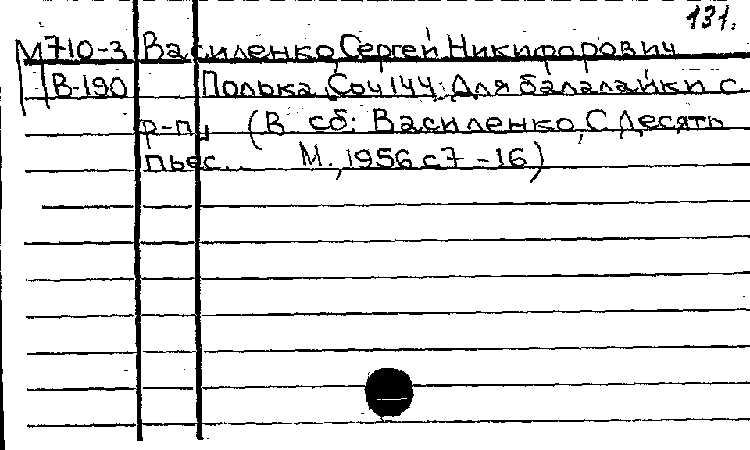 131.
М710-3 Василенко, Сергей Никифорович
В-190 Полька, Соч 144; Для балалайки с
р-пи (В сб: Василенко, С. Десять
пьес... М., 1956 с 7 -16)